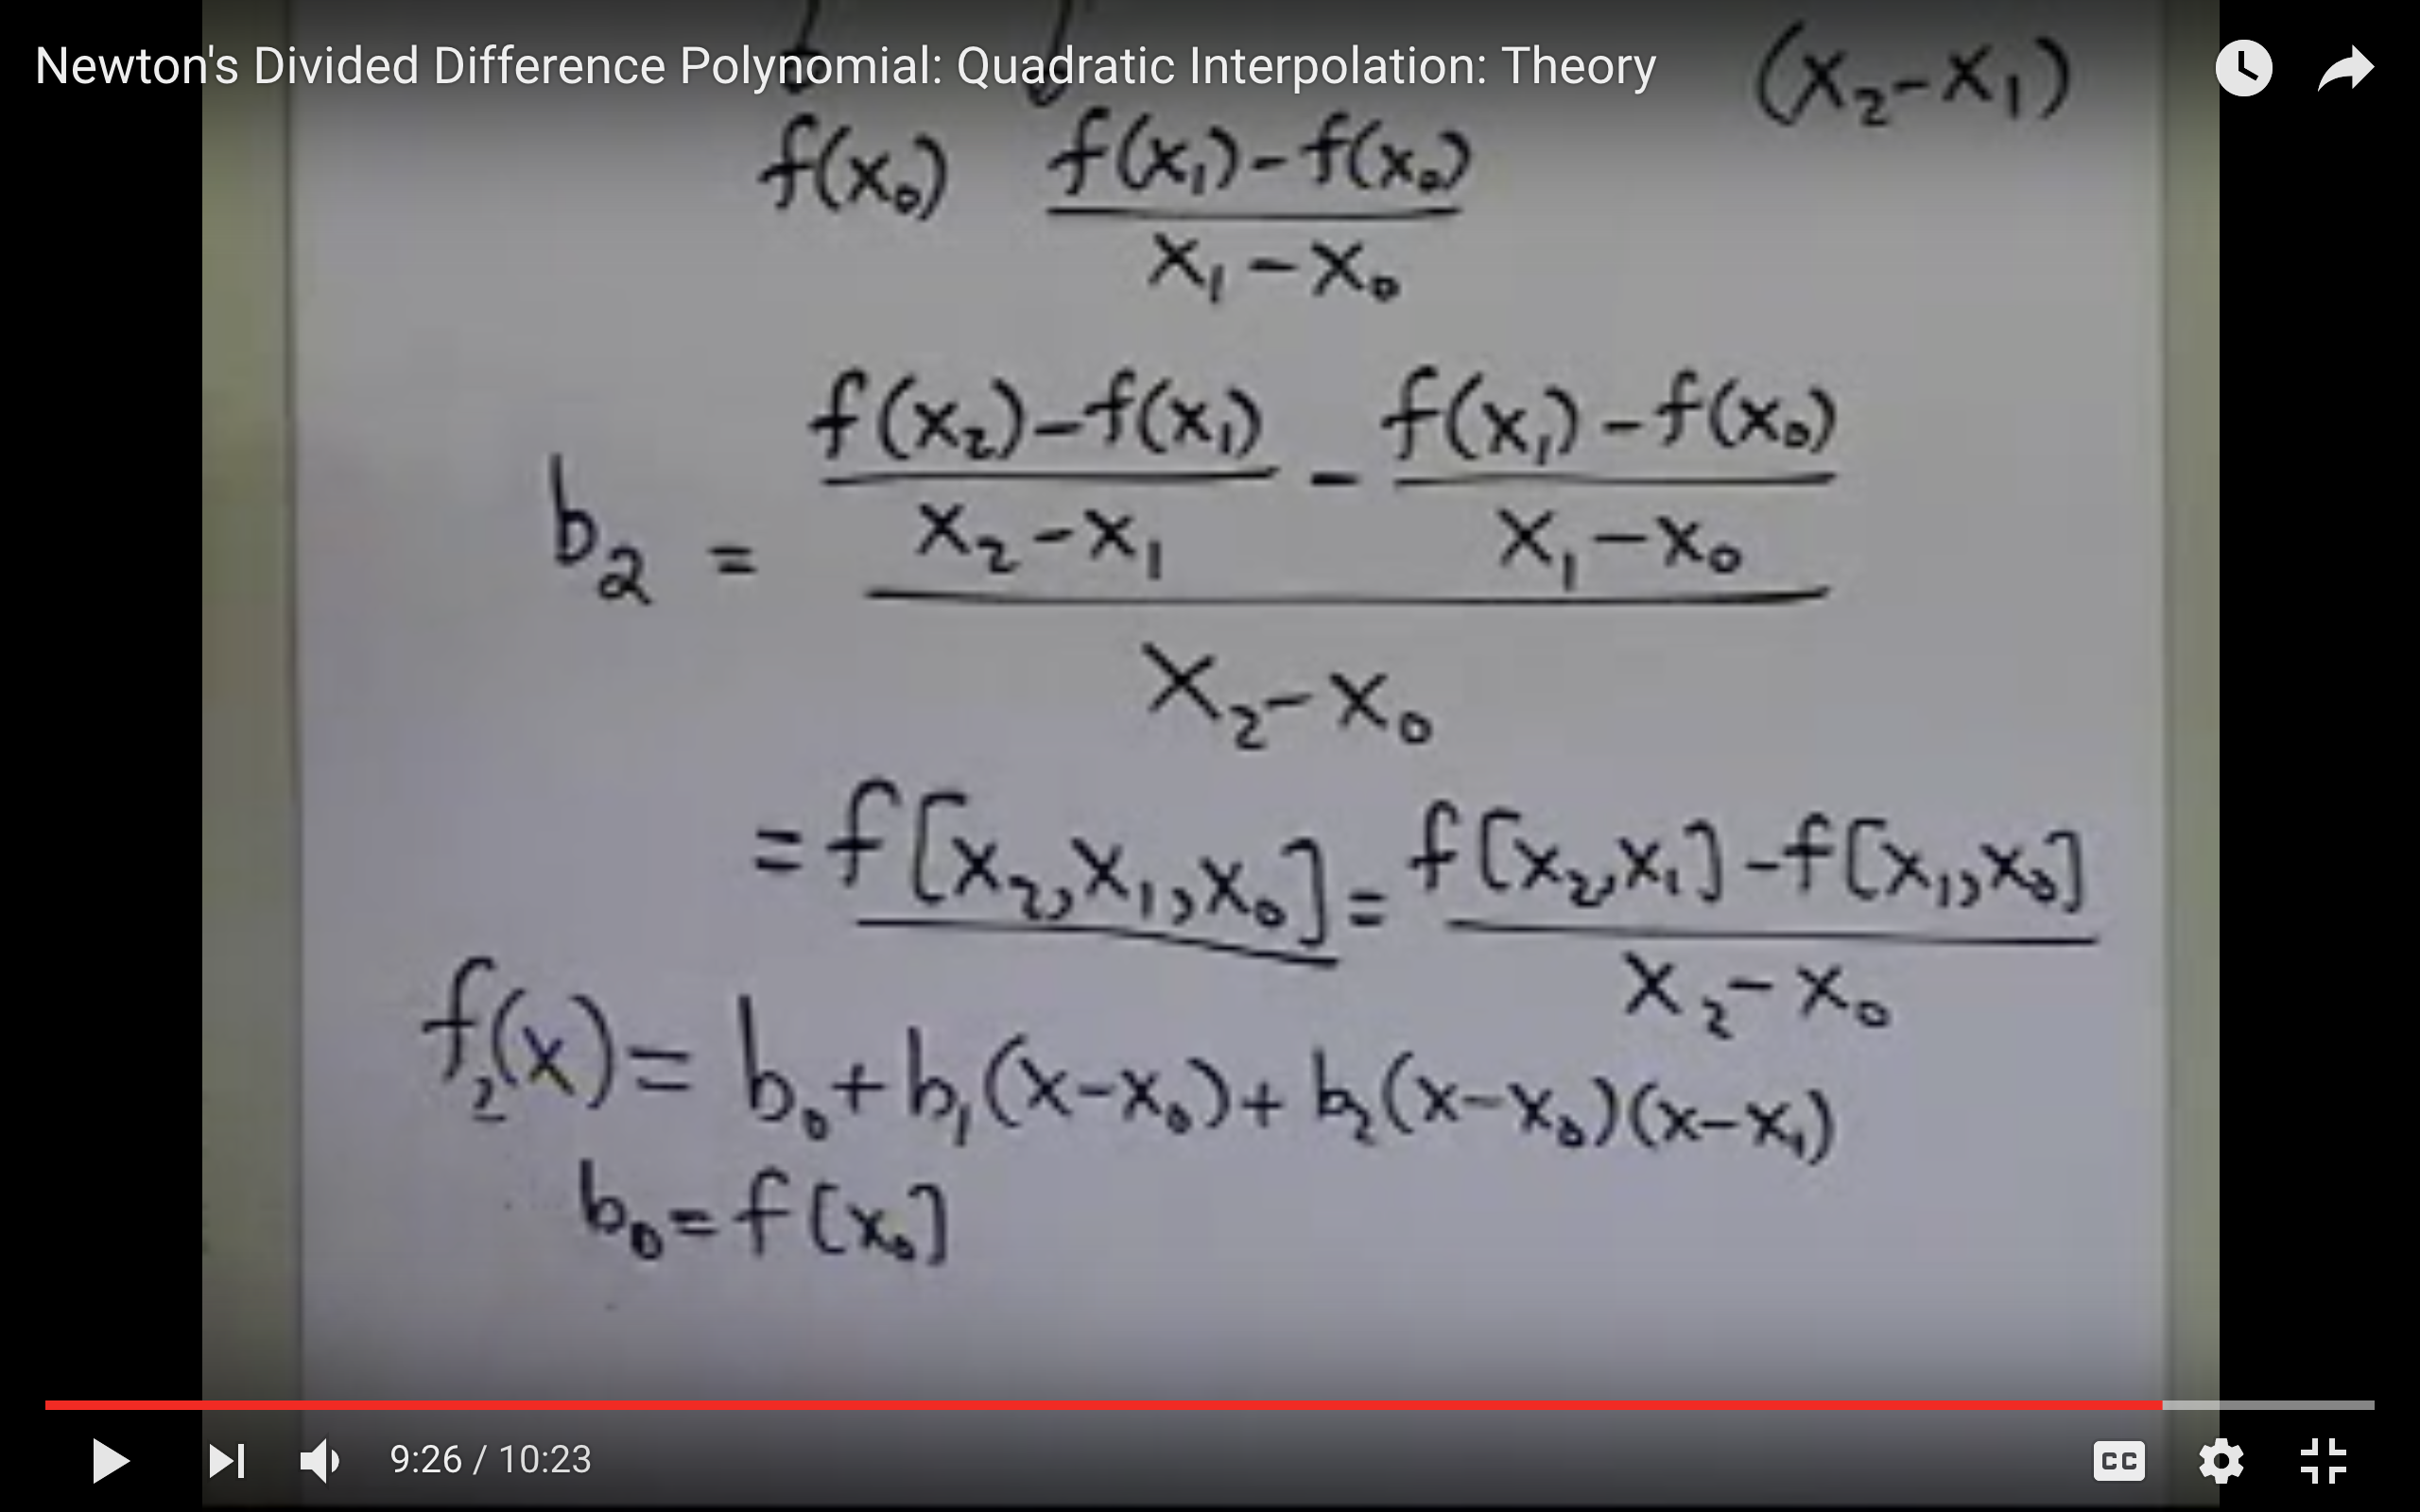 Newton's Divided Difference Polynomial: Quadratic Interpolation: Theory
(x₂-x₁)
f(x₀) f(x₁)-f(x₀)
x₁-x₀
f(x₂)-f(x₁) - f(x₁)-f(x₀)
b₂ = x₂-x₁ x₁-x₀
x₂-x₀
= f[x₂,x₁,x₀] = f[x₂,x₁]-f[x₁,x₀]
x₂-x₀
f₂(x) = b₀+b₁(x-x₀)+b₂(x-x₀)(x-x₁)
b₀=f[x₀]
9:26 / 10:23
CC